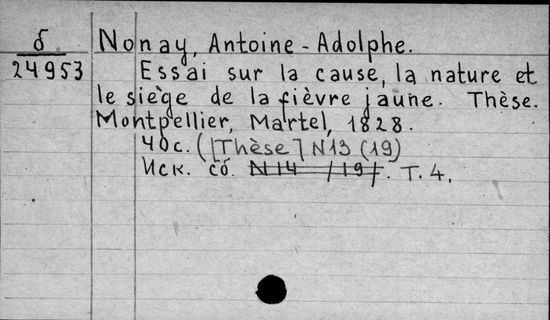 б Nonay, Antoine-Adolphe.
24953 Essai sur la cause, la nature et
le siège de la fièvre jaune. Thèse.
Montpellier, Martel, 1828.
40 с. ([Thèse] N13 (19)
Иск. сб. N14 /19/. Т. 4.